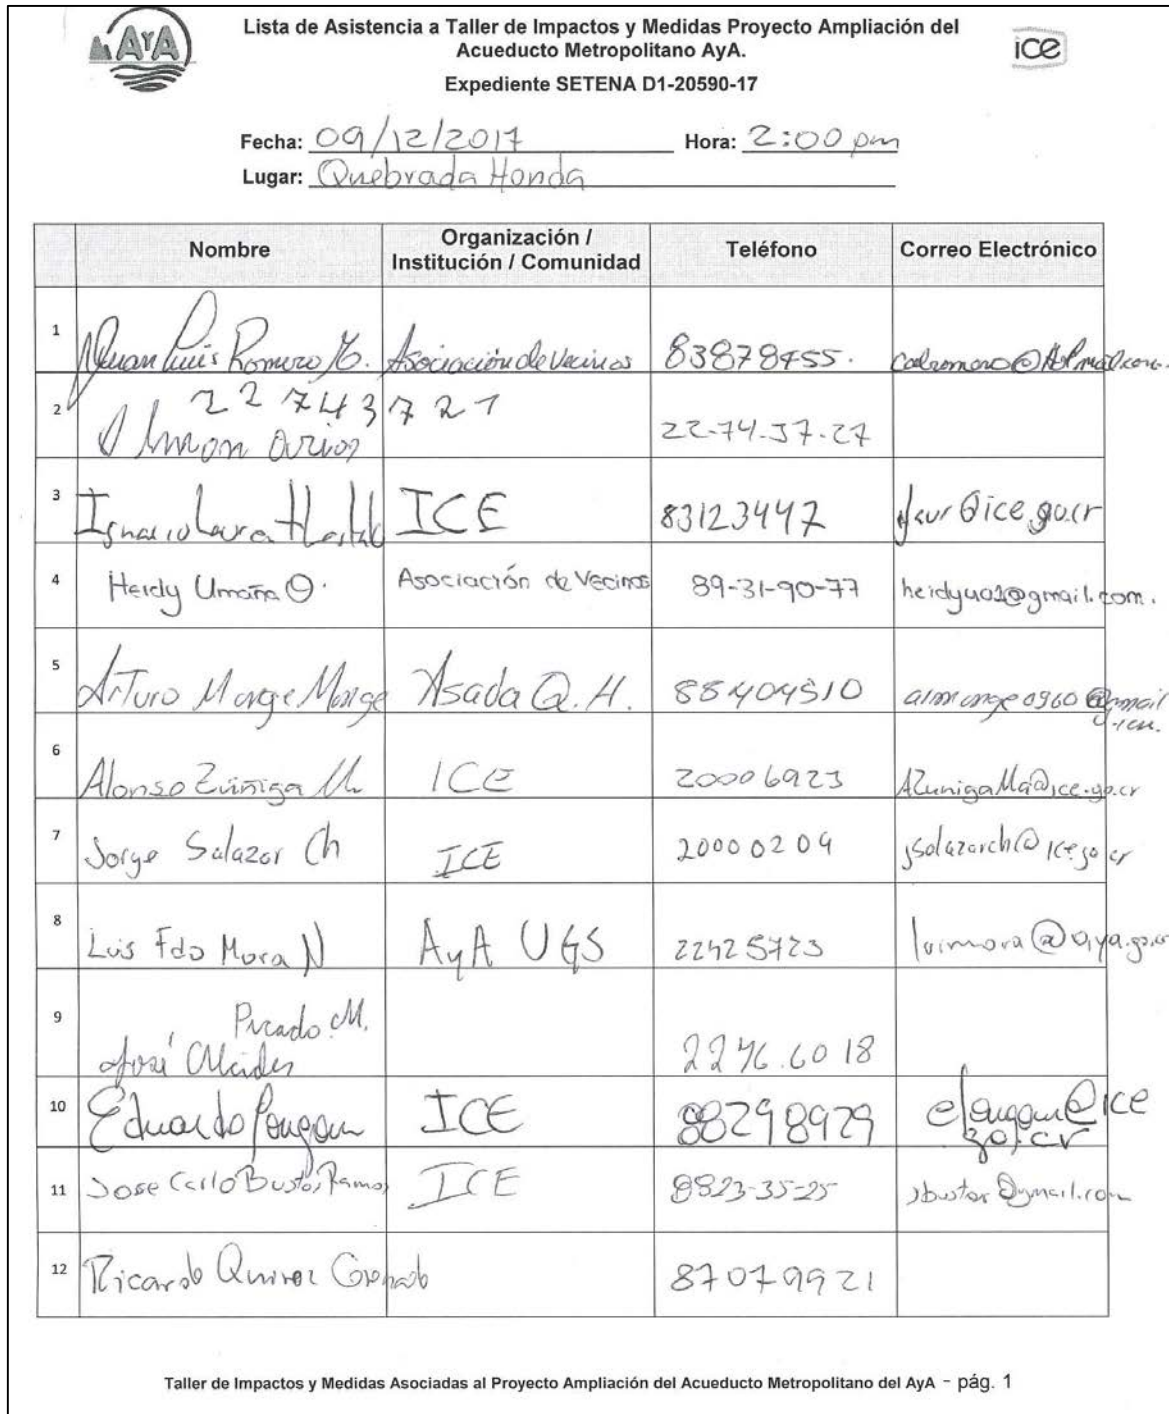 AYA
Lista de Asistencia a Taller de Impactos y Medidas Proyecto Ampliación del
Acueducto Metropolitano AyA.
ice
Expediente SETENA D1-20590-17
Fecha: 09/12/2017 Hora: 2:00 pm
Lugar: Quebrada Honda
Nombre Organización / Institución / Comunidad Teléfono Correo Electrónico
1 Juan Luis Romero Asociación de Vecinos 83878455.
2 22743721 22-74-37-27
3 Ignacio ICE 83123447 @ice.go.cr
4 Heidy Umaña O. Asociación de Vecinos 89-31-90-77 heidyu01@gmail.com.
5 Arturo Monge Monge Asada Q.H. 88404510 almonge0960@gmail
6 Alonso Zúñiga M. ICE 20006923 AZunigaMa@ice.go.cr
7 Jorge Salazar Ch ICE 20000209 jsalazarch@ice.go.cr
8 Luis Fdo Mora N AyA UGS 22425723 luimora@aya.go.cr
9 Picado M.
José Alcides 2276.6018
10 Eduardo ICE 88298929 @ice
go.cr
11 Jose Carlo Bustos Ramos ICE 8823-35-25 jbustos@gmail.com
12 Ricardo Quiroz 87079921
Taller de Impactos y Medidas Asociadas al Proyecto Ampliación del Acueducto Metropolitano del AyA - pág. 1